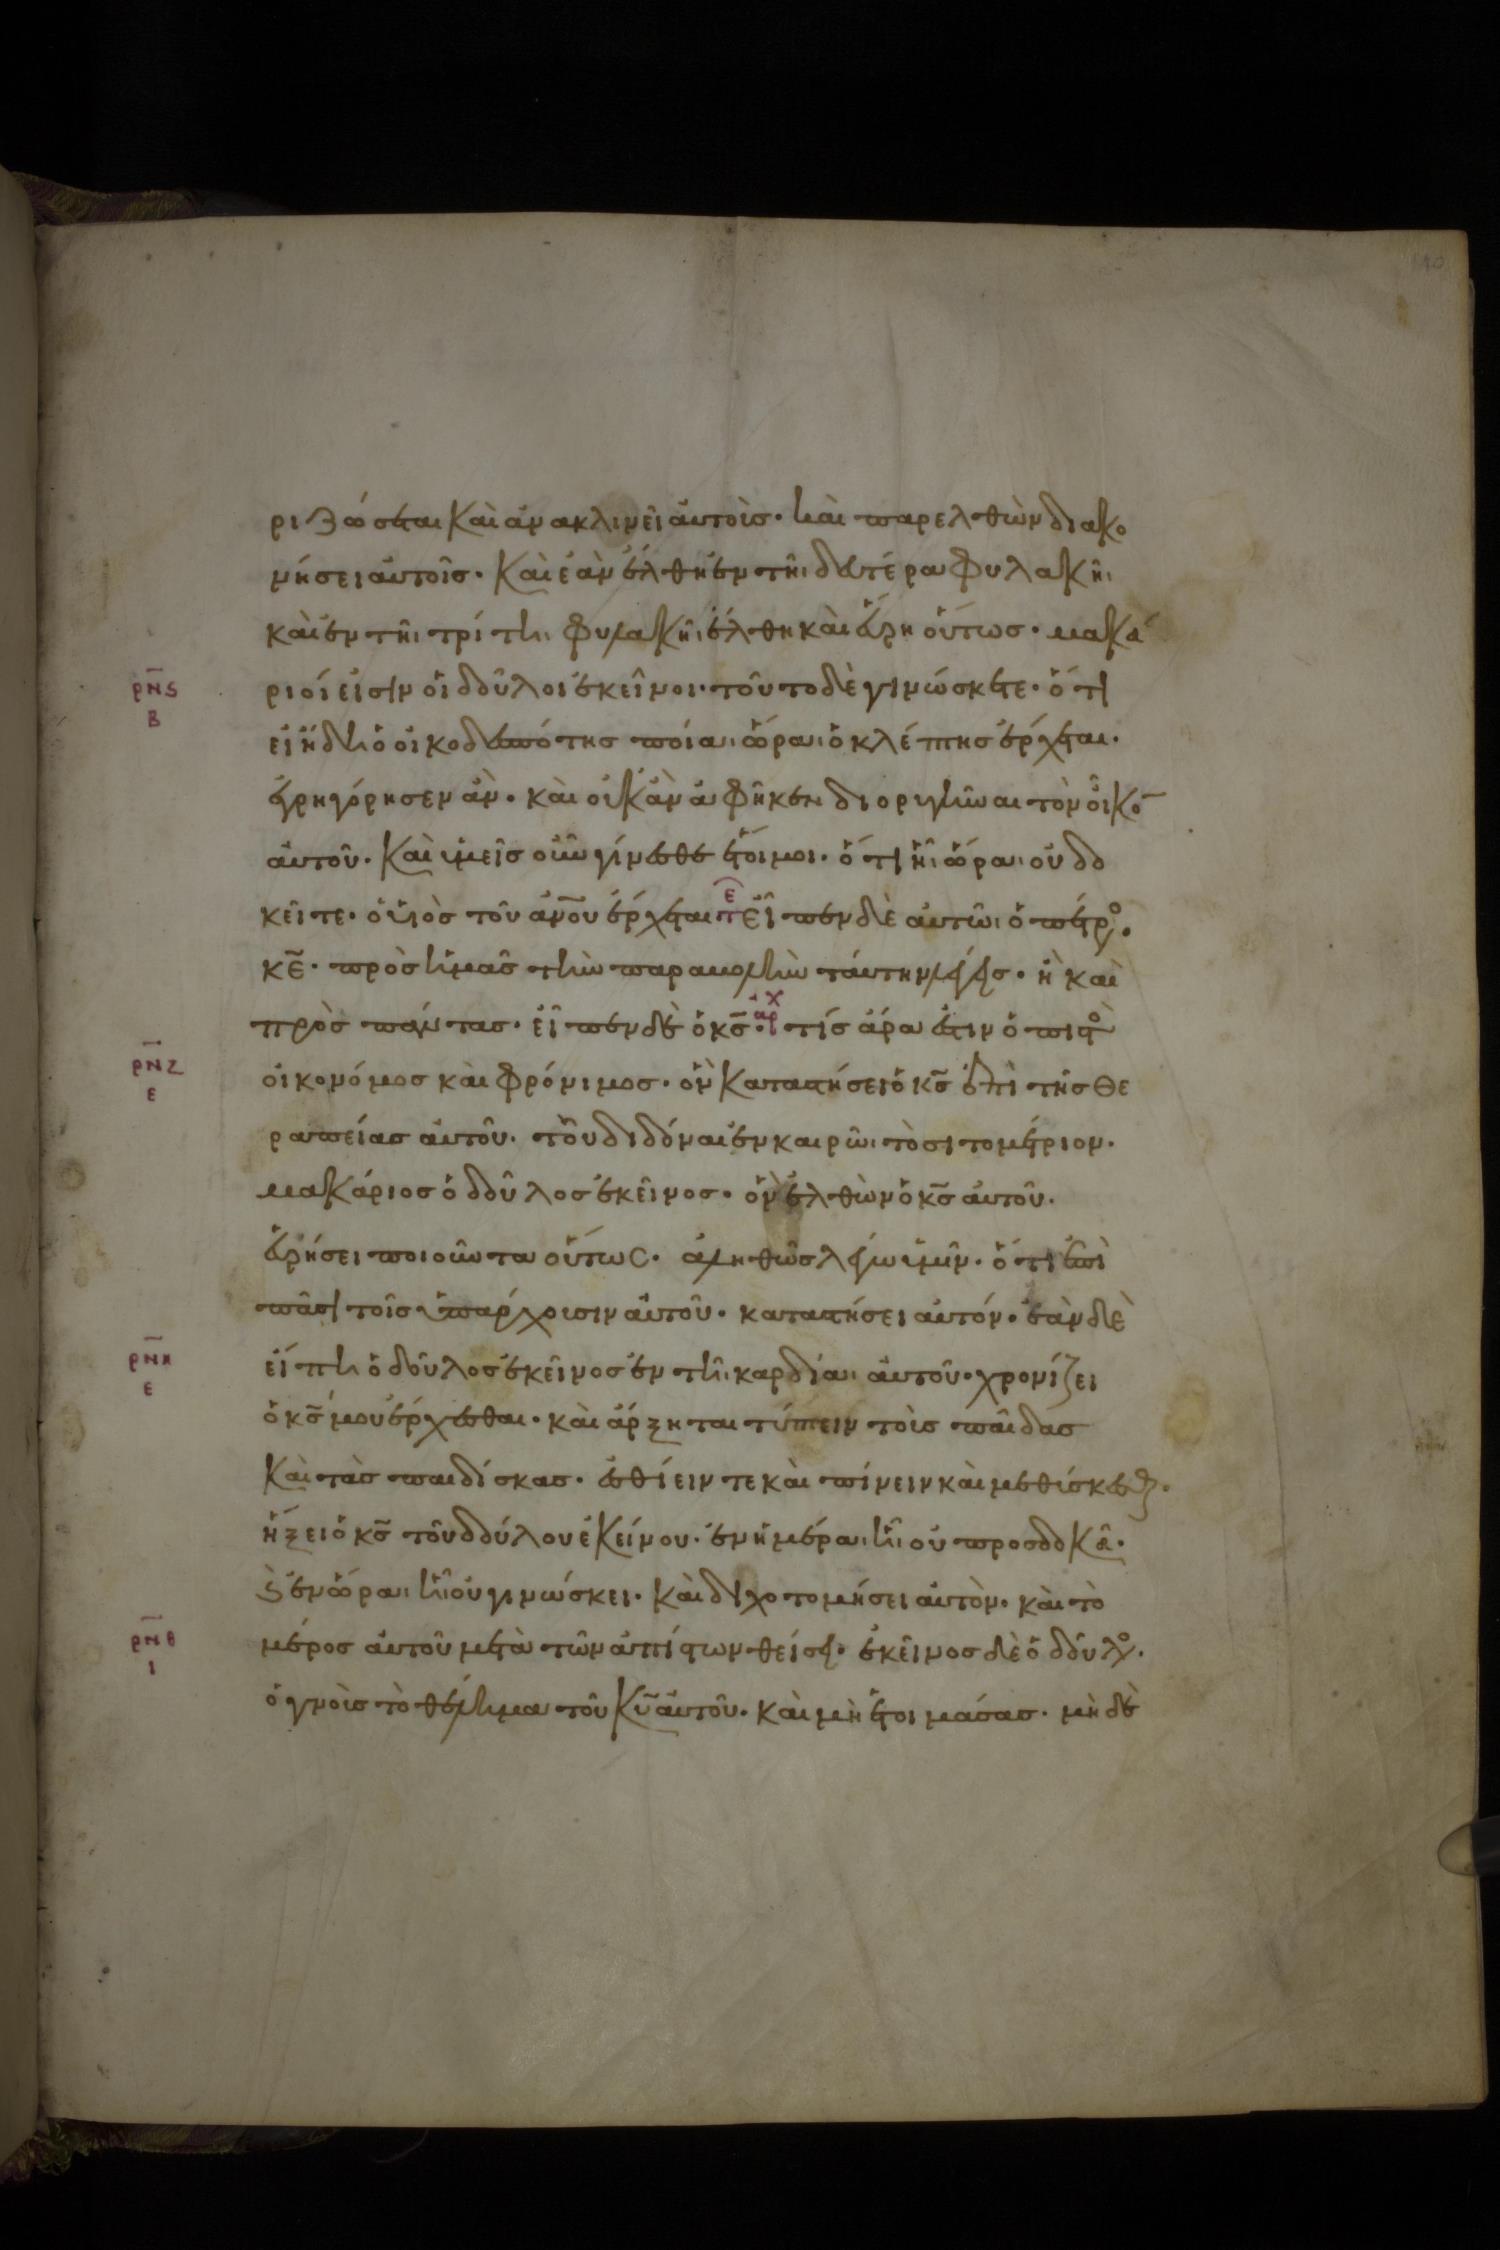 ριζώσεται καὶ ἀνακλινεῖ αὐτοὺσ· καὶ παρελθὼν διακο
νήσει αὐτοῖσ· καὶ ἐὰν ἔλθη ἐν τῆι δευτέραι φυλακῆι
καὶ ἐν τῆι τρίτηι φυλακῆι ἔλθη καὶ εὕρη οὕτωσ· μακά
ρνς
ριοί εἰσιν οἱ δοῦλοι ἐκεῖνοι· τοῦτο δὲ γινώσκετε· ὅτι
β
εἰ ἤδει ὁ οἰκοδεσπότησ ποίαι ὥραι ὁ κλέπτησ ἔρχεται·
ἐγρηγόρησεν ἂν· καὶ οὐκ ἂν ἀφῆκεν διορυγῆναι τὸν οἶκο̅
αὐτοῦ· καὶ ὑμεῖσ οὖν γίνεσθε ἕτοιμοι· ὅτι ἧι ὥραι οὐ δο
κεῖτε· ὁ υἱὸσ τοῦ ἀν̅ο̅υ ἔρχεται τε εἶπεν δὲ αὐτῶι ὁ πέτρο·
κ̅ε̅· πρὸσ ἡμᾶσ τὴν παραβολὴν ταύτην λέγεισ· ἢ καὶ
πρὸσ πάντασ· εἶπεν δὲ ὁ κ̅σ̅· αρχ τίσ ἄρα ἐστιν ὁ πιστὸ
ρνζ
οἰκονόμοσ καὶ φρόνιμοσ· ὃν καταστήσει ὁ κ̅σ̅ ἐπὶ τῆσ θε
ε
ραπείασ αὐτοῦ· τοῦ διδόναι ἐν καιρῶι τὸ σιτομέτριον·
μακάριοσ ὁ δοῦλοσ ἐκεῖνοσ· ὃν ἐλθὼν ὁ κ̅σ̅ αὐτοῦ·
εὑρήσει ποιοῦντα οὕτωσ· ἀληθῶσ λέγω ὑμῖν· ὅτι ἐπὶ
πᾶσι τοῖσ ὑπάρχουσιν αὐτοῦ· καταστήσει αὐτόν· ἐὰν δὲ
ρνη
εἴπηι ὁ δοῦλοσ ἐκεῖνοσ ἐν τῆι καρδίαι αὐτοῦ· χρονίζει
ε
ὁ κ̅σ̅ μου ἔρχεσθαι· καὶ ἄρξηται τύπτειν τοὺσ παῖδασ
καὶ τὰσ παιδίσκασ· ἐσθίειν τε καὶ πίνειν καὶ μεθύσκεσθαι·
ἥξει ὁ κ̅σ̅ τοῦ δούλου ἐκείνου· ἐν ἡμέραι ἧι οὐ προσδοκᾶ·
ϗ ἐν ὥραι ἧι οὐ γινώσκει· καὶ διχοτομήσει αὐτὸν· καὶ τὸ
ρνθ
μέροσ αὐτοῦ μετὰ τῶν ἀπίστων θείσει· ἐκεῖνοσ δὲ ὁ δοῦλο·
ι
ὁ γνοὺσ τὸ θέλημα τοῦ κ̅υ̅ αὐτοῦ· καὶ μὴ ἑτοιμάσασ· μηδὲ